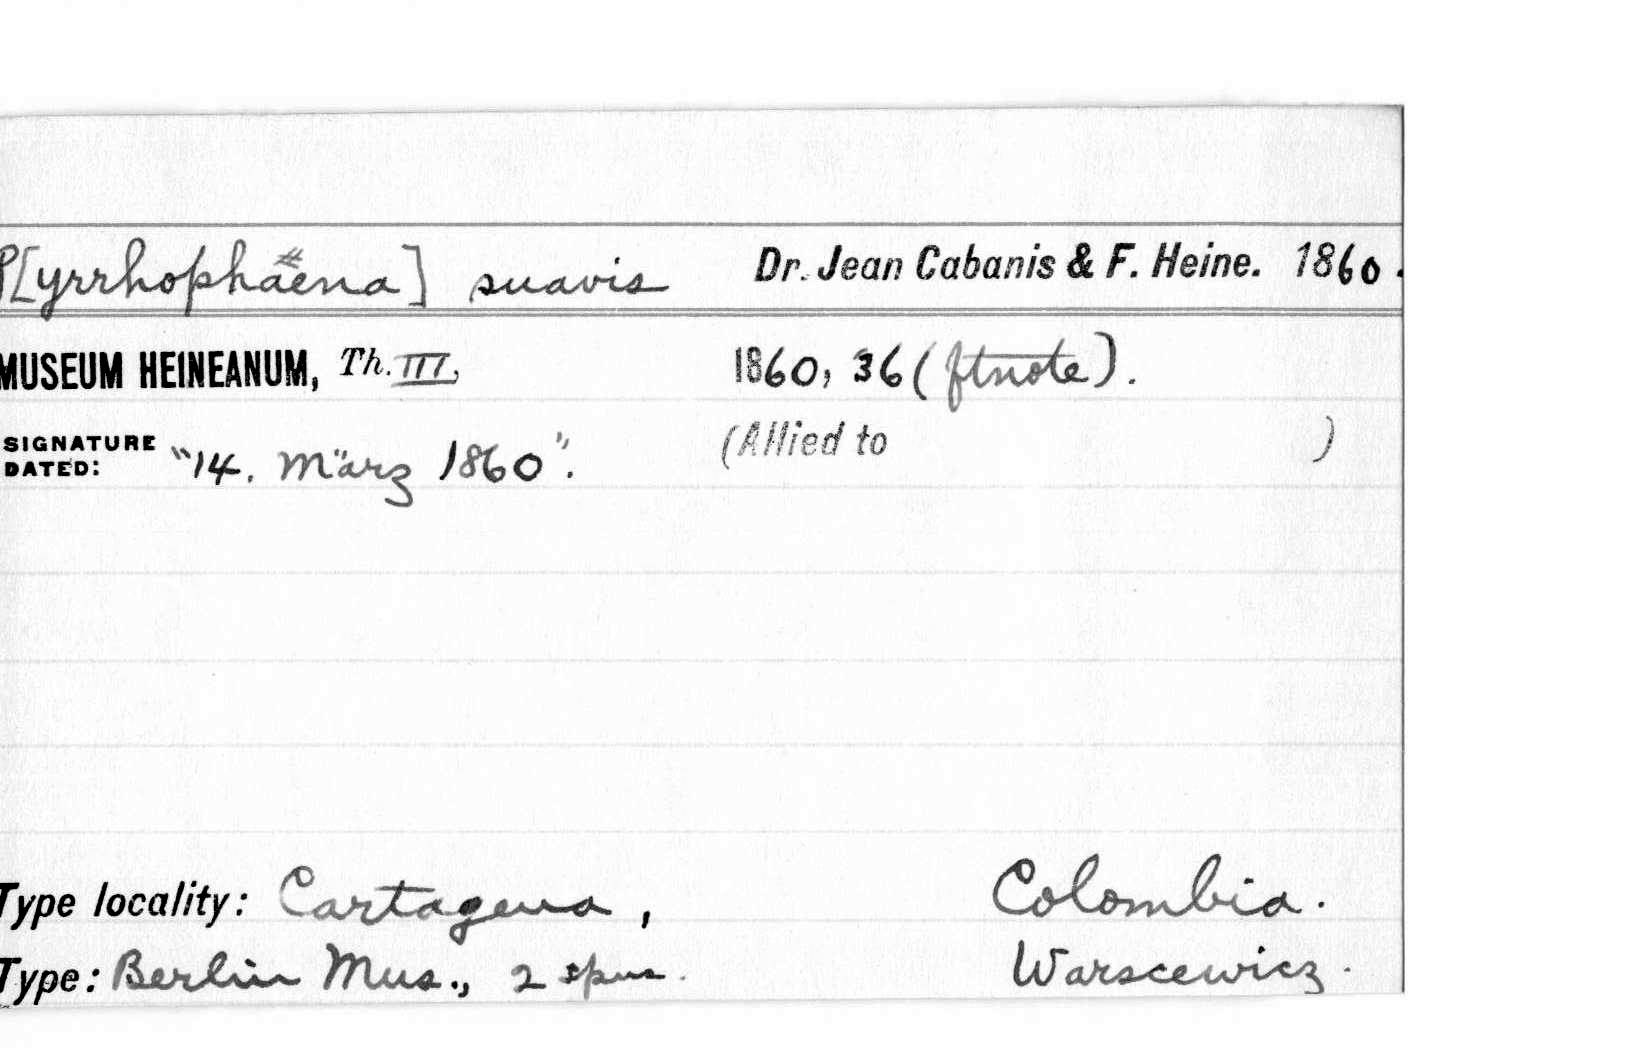 P[yrrhophaena] suavis Dr. Jean Cabanis & F. Heine. 1860.
MUSEUM HEINEANUM, Th. III, 1860, 36 (ftnote).
SIGNATURE DATED: "14. März 1860". (Allied to )
Type locality: Cartagena, Colombia.
Type: Berlin Mus., 2 spms. Warscewicz.